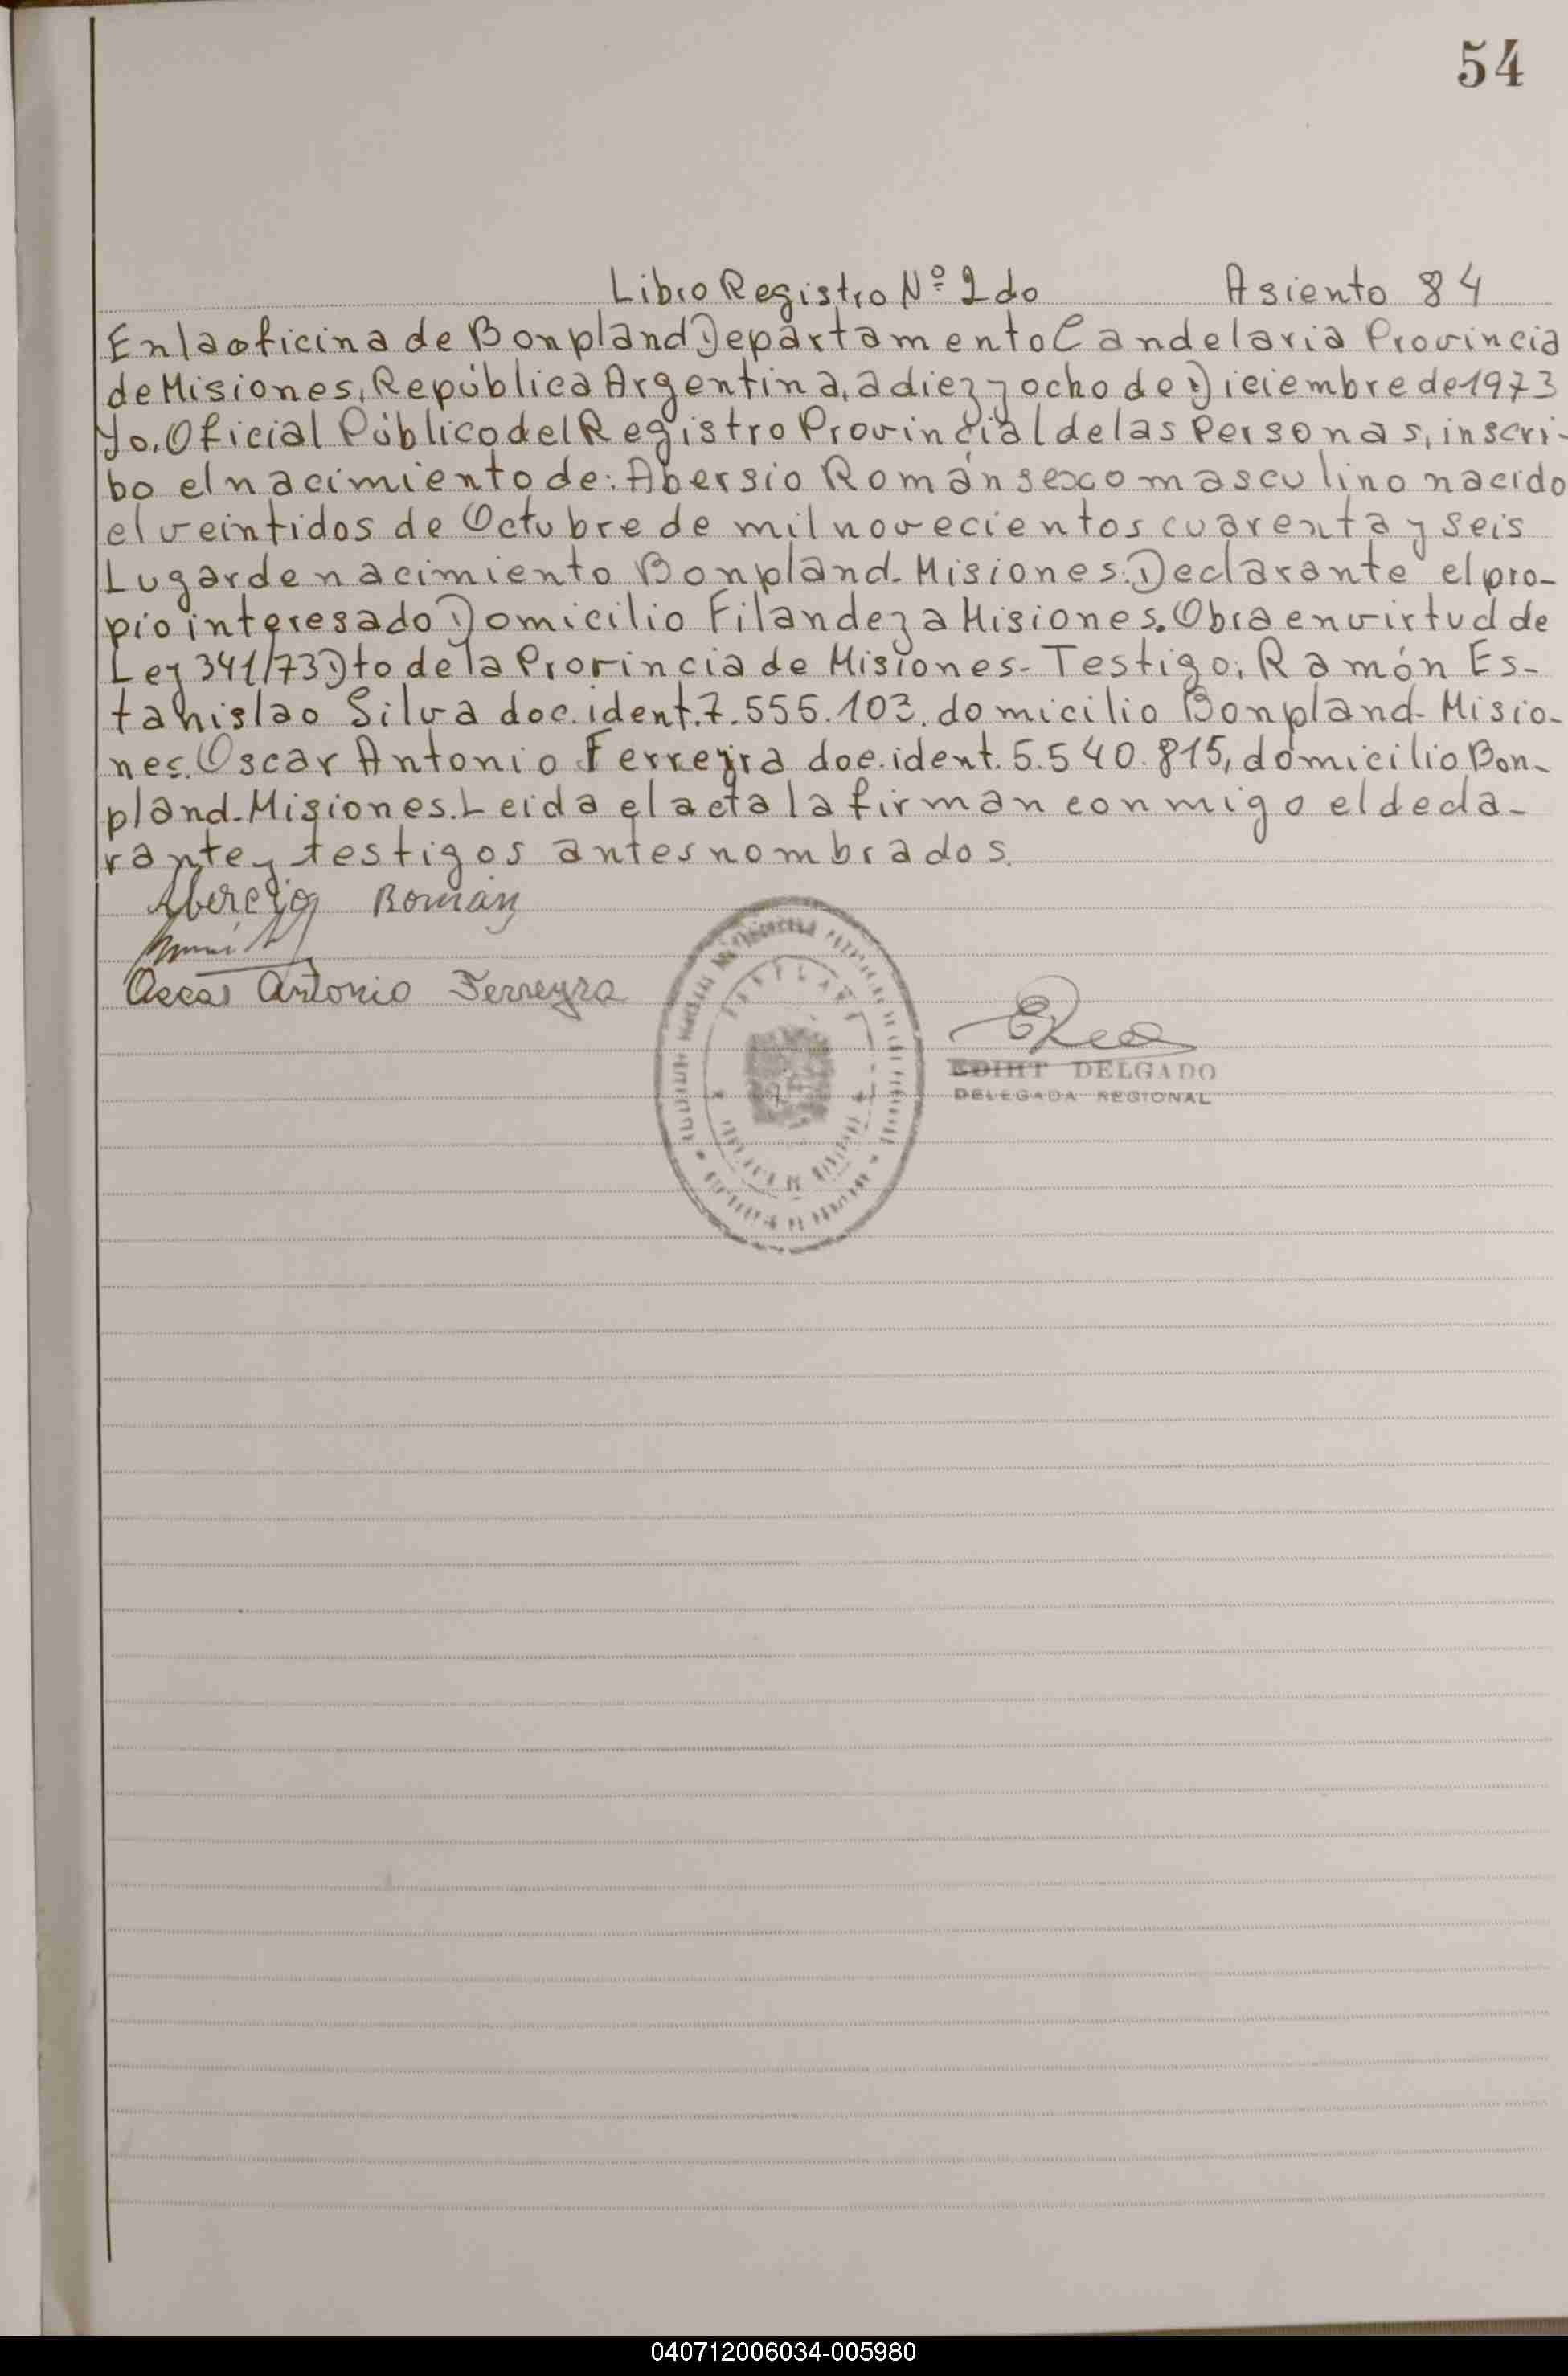 54
Libro Registro Nº 2do Asiento 84
En la oficina de Bonpland Departamento Candelaria Provincia
de Misiones, República Argentina, a diez y ocho de Diciembre de 1973
Yo. Oficial Público del Registro Provincial de las Personas, inscri-
bo el nacimiento de: Abersio Román sexo masculino nacido
el veintidos de Octubre de mil novecientos cuarenta y seis
Lugar de nacimiento Bonpland. Misiones. Declarante el pro-
pio interesado Domicilio Filandeza Misiones. Obra en virtud de
Ley 341/73 Dto de la Provincia de Misiones- Testigo: Ramón Es-
tanislao Silva doc. ident. 7.555.103. domicilio Bonpland- Misio-
nes. Oscar Antonio Ferreyra doc. ident. 5.540.815, domicilio Bon-
pland. Misiones. Leida el acta la firman conmigo el decla-
rante y testigos antes nombrados.
Abercio Román
Oscar Antonio Ferreyra
EDIHT DELGADO
DELEGADA REGIONAL
040712006034-005980